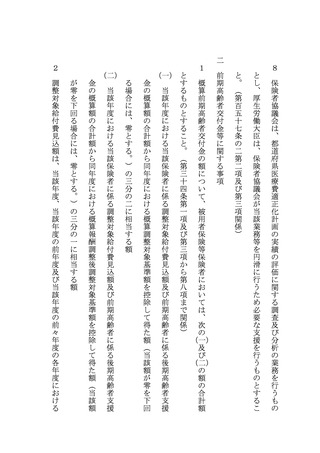 ８　保険者協議会は、都道府県医療費適正化計画の実績の評価に関する調査及び分析の業務を行うもの
とし、厚生労働大臣は、保険者協議会が当該業務等を円滑に行うため必要な支援を行うものとするこ
と。（第百五十七条の二第二項及び第三項関係）
二　前期高齢者交付金等に関する事項
１　概算前期高齢者交付金の額について、被用者保険等保険者においては、次の㈠及び㈡の額の合計額
とするものとすること。（第三十四条第一項及び第三項から第八項まで関係）
㈠　当該年度における当該保険者に係る調整対象給付費見込額及び前期高齢者に係る後期高齢者支援
金の概算額の合計額から同年度における概算調整対象基準額を控除して得た額（当該額が零を下回
る場合には、零とする。）の三分の二に相当する額
㈡　当該年度における当該保険者に係る調整対象給付費見込額及び前期高齢者に係る後期高齢者支援
金の概算額の合計額から同年度における概算報酬調整後調整対象基準額を控除して得た額（当該額
が零を下回る場合には、零とする。）の三分の一に相当する額
２　調整対象給付費見込額は、当該年度、当該年度の前年度及び当該年度の前々年度の各年度における